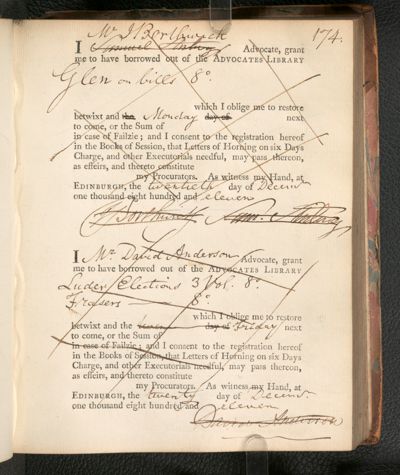 Mr J Borthwick 174.
I Samuel Advocate, grant
me to have borrowed out of the ADVOCATES LIBRARY
Glen on bills 8º.
which I oblige me to restore
betwixt and the Monday day of next
to come, or the Sum of
in case of Failzie; and I consent to the registration hereof
in the Books of Session, that Letters of Horning on six Days
Charge, and other Executorials needful, may pass thereon,
as effeirs, and thereto constitute
my Procurators. As witness my Hand, at
EDINBURGH, the twentieth day of Decemr
one thousand eight hundred and eleven
J Borthwick
I Mr David Anderson Advocate, grant
me to have borrowed out of the ADVOCATES LIBRARY
Luders Elections 3 Vol. 8º.
Frasers 8º.
which I oblige me to restore
betwixt and the day of Friday next
to come, or the Sum of
in case of Failzie; and I consent to the registration hereof
in the Books of Session, that Letters of Horning on six Days
Charge, and other Executorials needful, may pass thereon,
as effeirs, and thereto constitute
my Procurators. As witness my Hand, at
EDINBURGH, the twenty day of Decemr
one thousand eight hundred and eleven
David Anderson